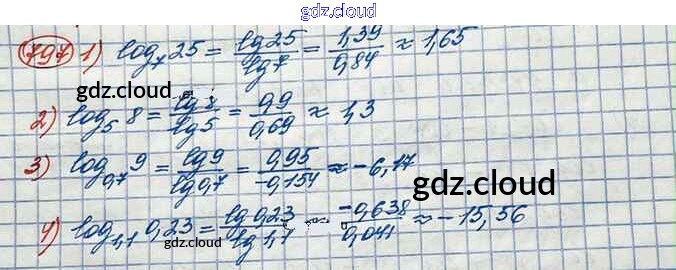 gdz.cloud
797 1) log₇ 25 = lg 25 / lg 7 = 1,39 / 0,84 ≈ 1,65
gdz.cloud
2) log₅ 8 = lg 8 / lg 5 = 0,9 / 0,69 ≈ 1,3
3) log₀,₇ 9 = lg 9 / lg 0,7 = 0,95 / -0,154 ≈ -6,17
gdz.cloud
4) log₁,₁ 0,23 = lg 0,23 / lg 1,1 = -0,638 / 0,041 ≈ -15,56
gdz.cloud